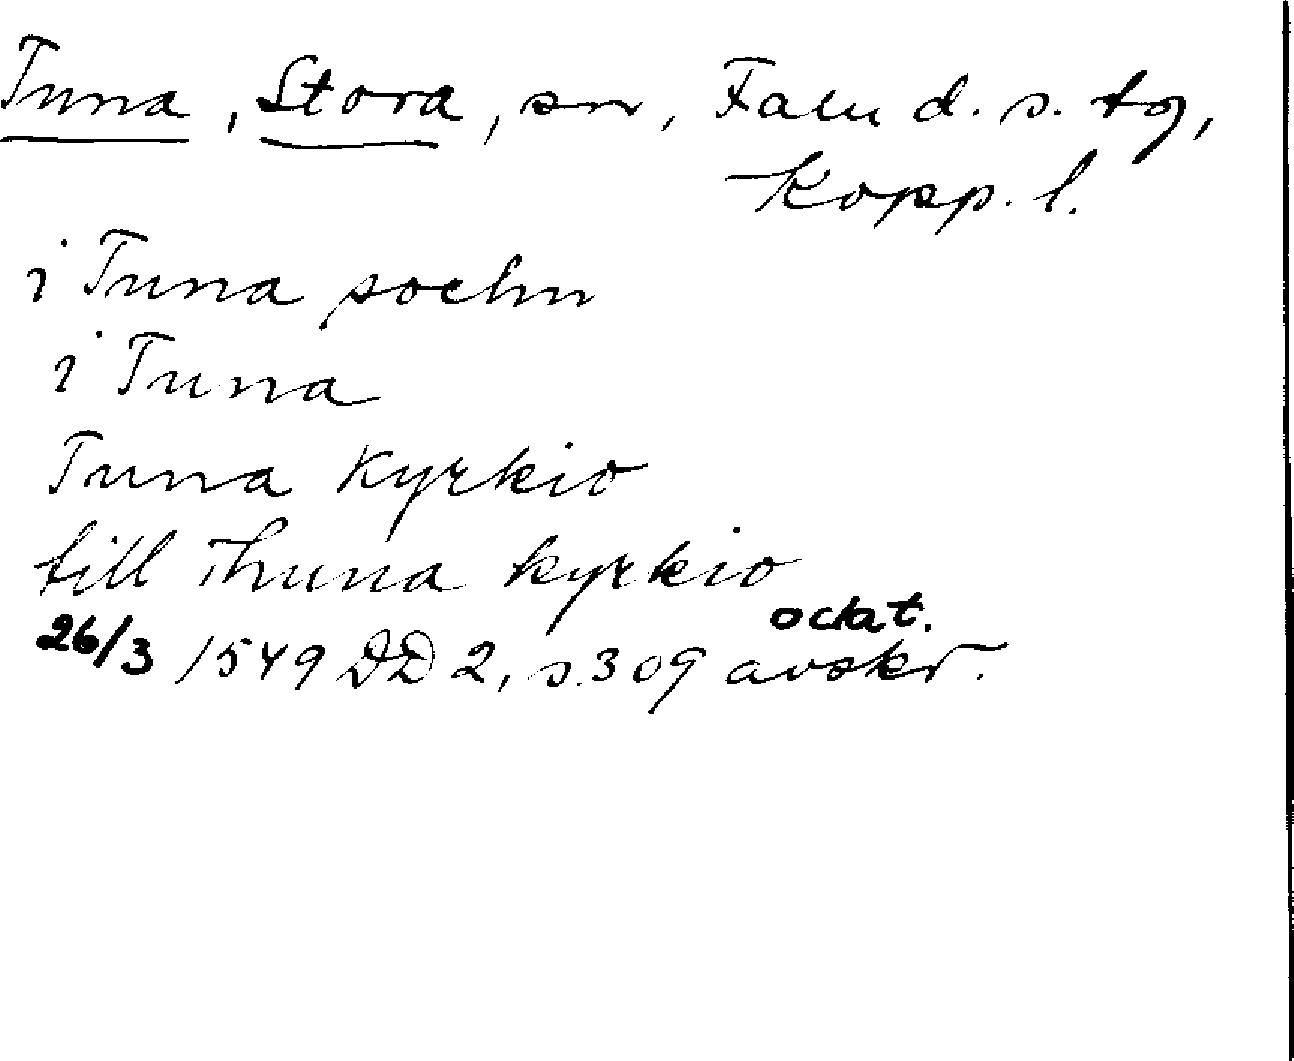 Tuna, Stora, sn, Falu d. s. tg,
Kopp. l.
i Tuna sochn
i Tuna
Tuna Kyrkio
till Thuna kyrkio
odat.
26/3 1549 DD 2, s. 309 avskr.